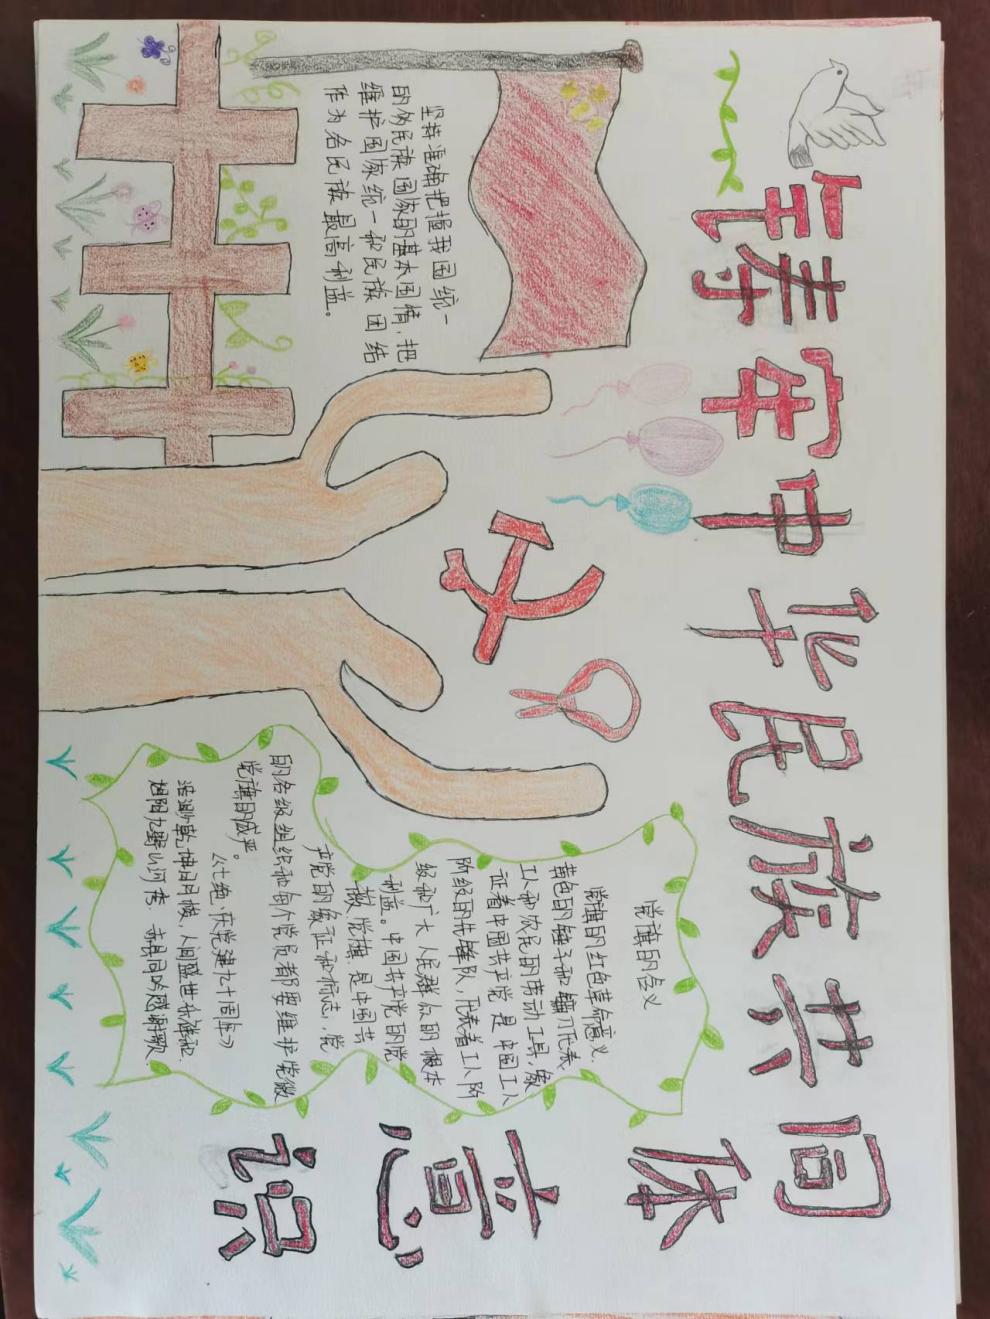 铸牢中华民族共同
体
意
识
坚持准确把握我国统一
的多民族国家的基本国情，把
维护国家统一和民族团结
作为各民族最高利益。
党旗的含义
党旗的红色革命意义，
黄色的锤子和镰刀代表
工人和农民的劳动工具，象
征着中国共产党是中国工人
阶级的先锋队，代表着工人阶
级和广大人民群众的根本
利益。中国共产党的党
徽党旗是中国共
产党的象征和标志，党
的各级组织和每个党员都要维护党徽
党旗的威严。
《七绝·庆党建九十周年》
浩渺乾坤日月梭，人间盛世布祥和．
旭阳九野山河秀，亦是同吟感谢歌．